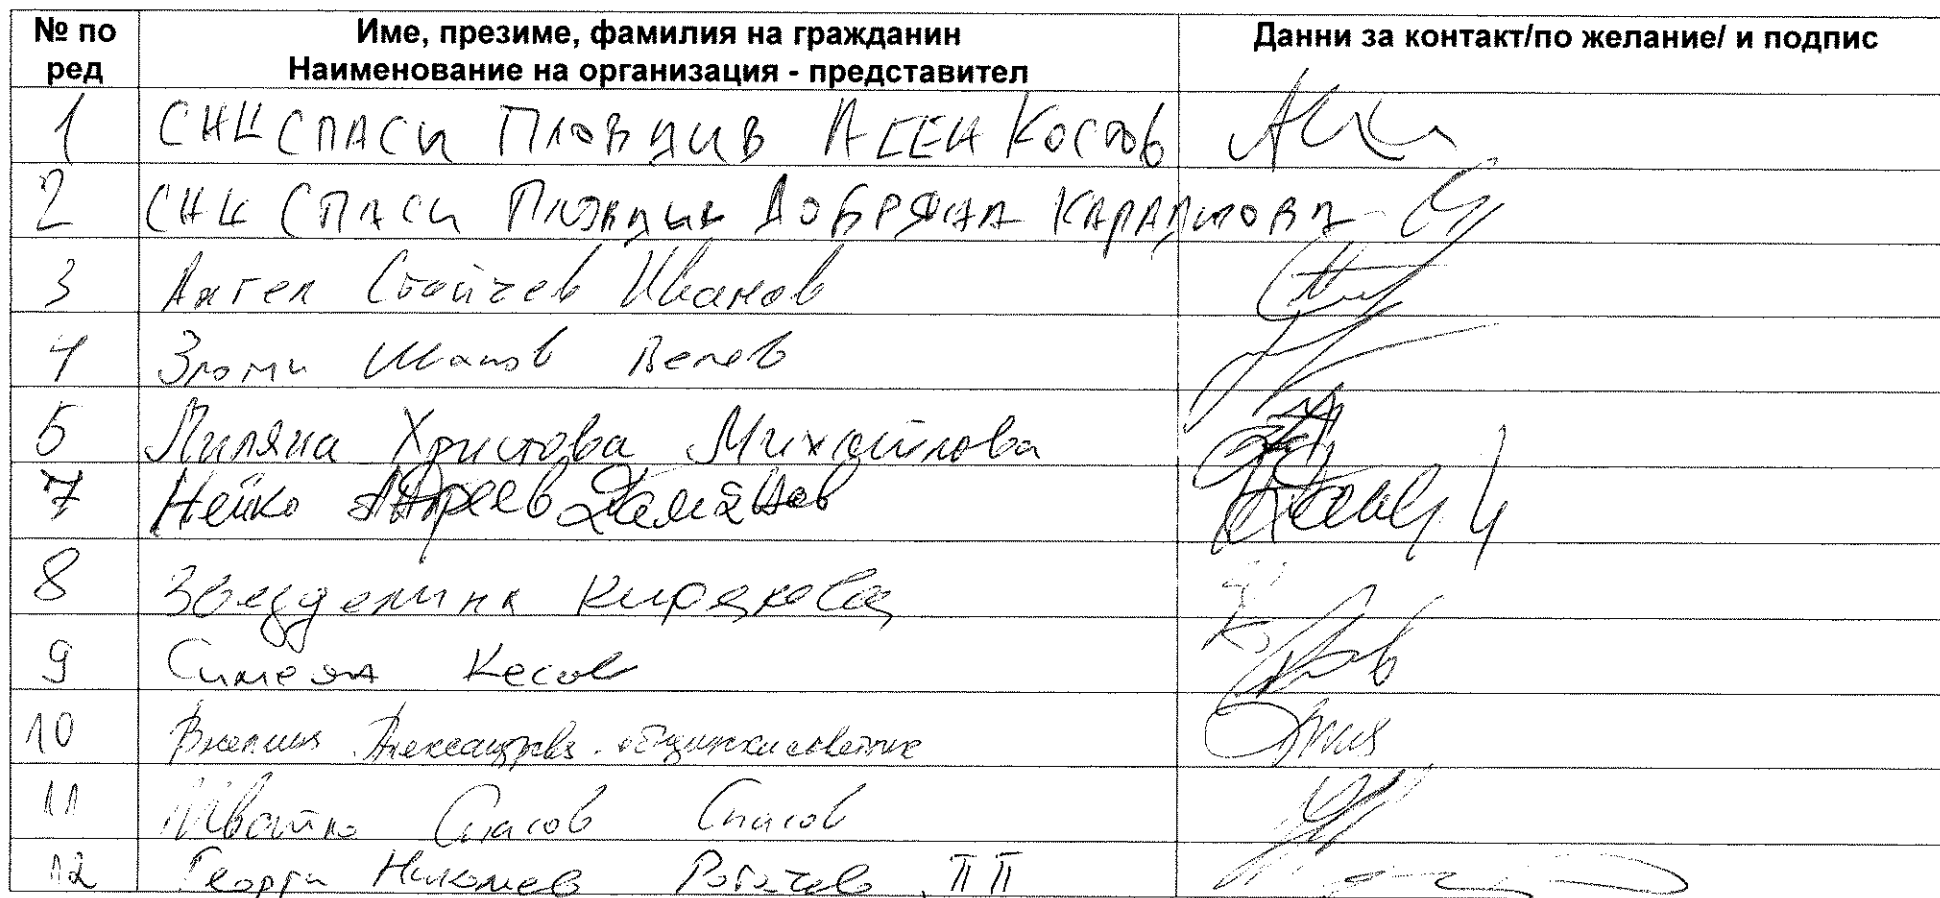 № по ред
Име, презиме, фамилия на гражданин
Наименование на организация - представител
Данни за контакт/по желание/ и подпис
1 СНЦ СПАСИ ПЛОВДИВ АСЕН КОСТОВ
2 СНЦ СПАСИ ПЛОВДИВ ДОБРЯНА КАРАДИМОВА
3 Ангел Стойчев Иванов
4 Велев
5 Миляна Христова Михайлова
7 Нейко
8 Звезделина Кирякова
9 Симеон Кесов
10 Александрова - общински съветник
11 Спасов Спасов
12 Георги Николаев ПП